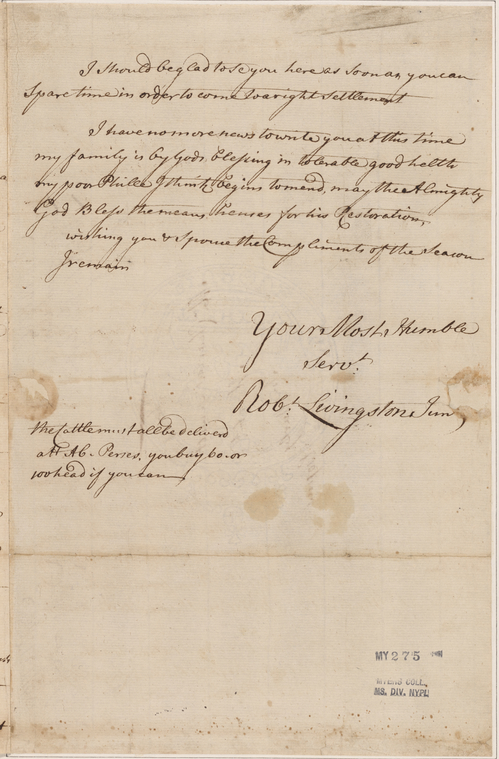 I Should be glad to se you here as soon as you can
Spare time in order to come to a right Settlement
I have no more news to write you at this time
my family is by Gods blessing in tolerable good helth
my poor Philip I think begins to mend, may the Almighty
God Bless the means he uses for his Restoration,
wishing you & Spouse the Compliments of the Season
I remain
Your Most Humble
Servt.
Robt. Livingston Jun
the Cattle must all be deliverd
att Ab. you buy 60. or
100 head if you can
MY 275
MYERS COLL.
MS. DIV. NYPL